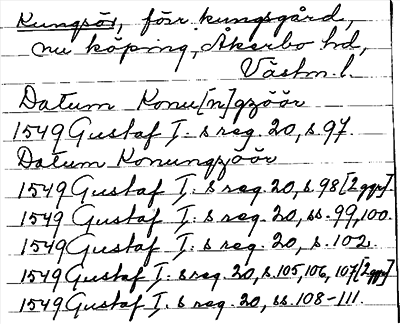 Kungsör, förr kungsgård,
nu köping, Åkerbo hd,
Västm. l.
Datum Konu[n]gzöör
1549 Gustaf I:s reg. 20, s. 97.
Datum Konungzöör
1549 Gustaf I:s reg. 20, s. 98 [2 ggr].
1549 Gustaf I:s reg. 20, ss. 99, 100.
1549 Gustaf I:s reg. 20, s. 102.
1549 Gustaf I:s reg. 20, s. 105, 106, 107 [2 ggr].
1549 Gustaf I:s reg. 20, ss. 108-111.